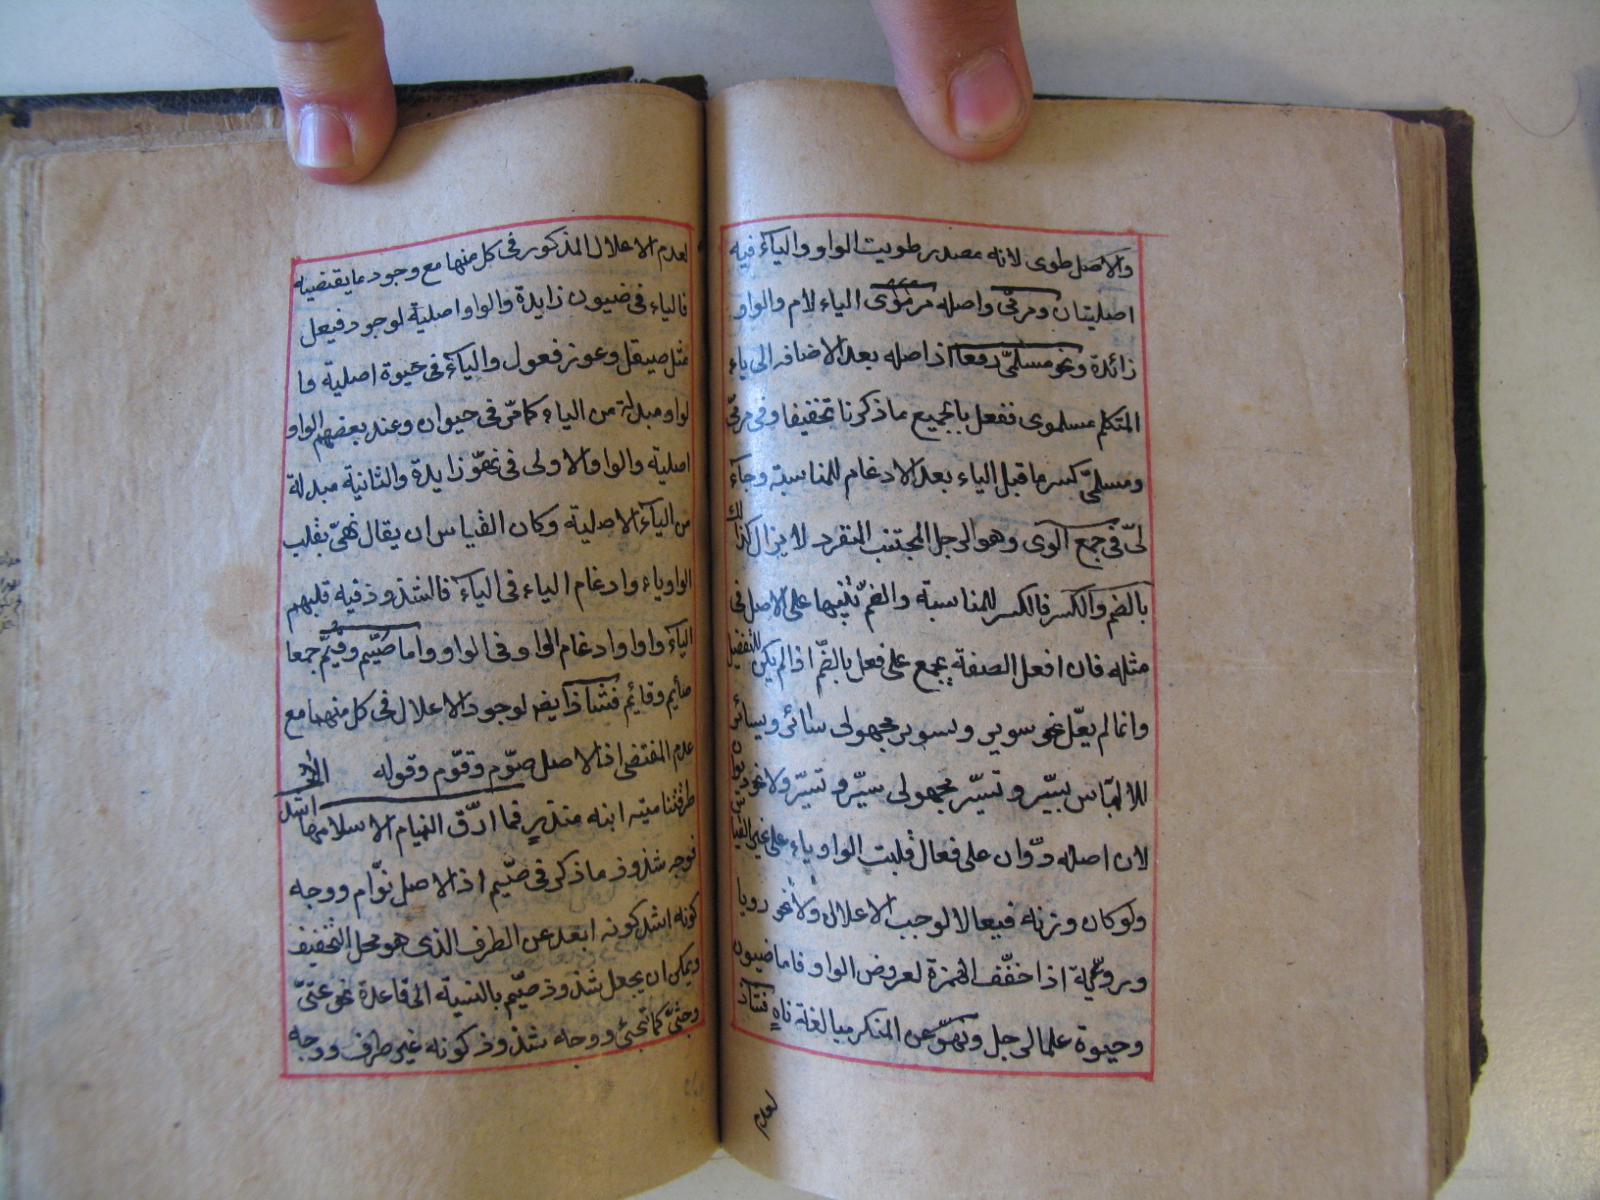 والاصل طوى لانه مصدر طويت الواو والياء فيه
اصليتان ومرمّى واصله مرموى الياء لام والواو
زائدة ونحو مسلمىّ دفعا اذ اصله بعد الاضافه الى ياء
المتكلم مسلموى ففعل بالجميع ما ذكرنا تخفيفا وفى مرمّى
ومسلمىّ كسر ما قبل الياء بعد الادغام للمناسبة وجآء
لىّ فى جمع الوى وهو الرجل المجتنب المنفرد لا يزال كذلك
بالضم والكسر فالكسر للمناسبة والضمّ تنبيها على الاصل فى
مثله فان افعل الصفة يجمع على فعل بالضّم اذا لم يكن للتفضيل
وانما لم يعّل نحو سوير وتسوير مجهولى سائر وتسائر
للالباس بسيّر وتسيّر مجهولى سيّر وتسيّر ولا نحو ديوان
لان اصله دوّان على فعال قلبت الواو ياء على غير القياس
ولو كان وزنه فيعالا لوجب الاعلال ولا نحو رويا
وروية اذا خفّف الهمزة لعروض الواو فاما ضيون
وحيوة علما لرجل ونهوّ عن المنكر مبالغة ناهٍ فشاذ
لعدم
لعدم الاعلال المذكور فى كل منها مع وجود ما يقتضيه
فالياء فى ضيون زايدة والواو اصلية لوجود فيعل
مثل صيقل وعوز فعول والياء فى حيوة اصلية وا
لواو مبدلة من الياء كما مرّ فى حيوان وعند بعضهم الواو
اصلية والواو الاولى فى نهوّ زايدة والثانية مبدلة
من اليآء الاصلية وكان القياس ان يقال نهىّ بقلب
الواو ياء وادغام الياء فى اليآء فالشذوذ فيه قلبهم
اليآء واوا وادغام الواو فى الواو واما صيّم وقيّم جمعا
صايم وقايم فشاذ ايضا لوجود الاعلال فى كل منهما مع
عدم المقتضى اذ الاصل صوّم وقوّم وقوله الا
طرقتنا مية ابنة منذرٍ فما ارّق النيام الا سلامها اشذ
فوجه شذوذ ما ذكر فى صيّم اذ الاصل نوّام ووجه
كونه اشذ كونه ابعد عن الطرف الذى هو محل التخفيف
ويمكن ان يجعل شذوذ صيّم بالنسبة الى قاعدة نحو عتىّ
وجثىّ كما تجئ ووجه شذوذ كونه غير طرف ووجه